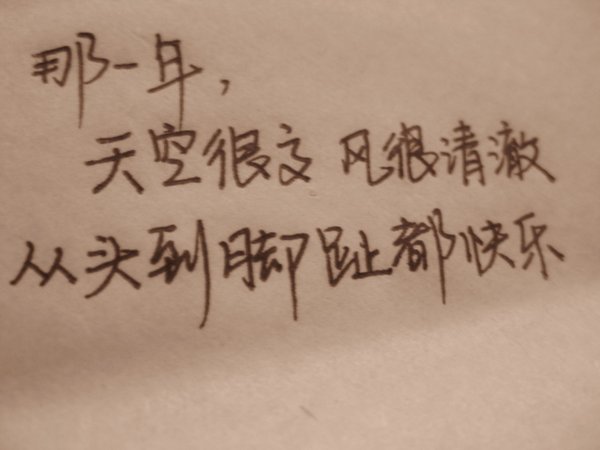 那一年，
天空很高 风很清澈
从头到脚趾都快乐